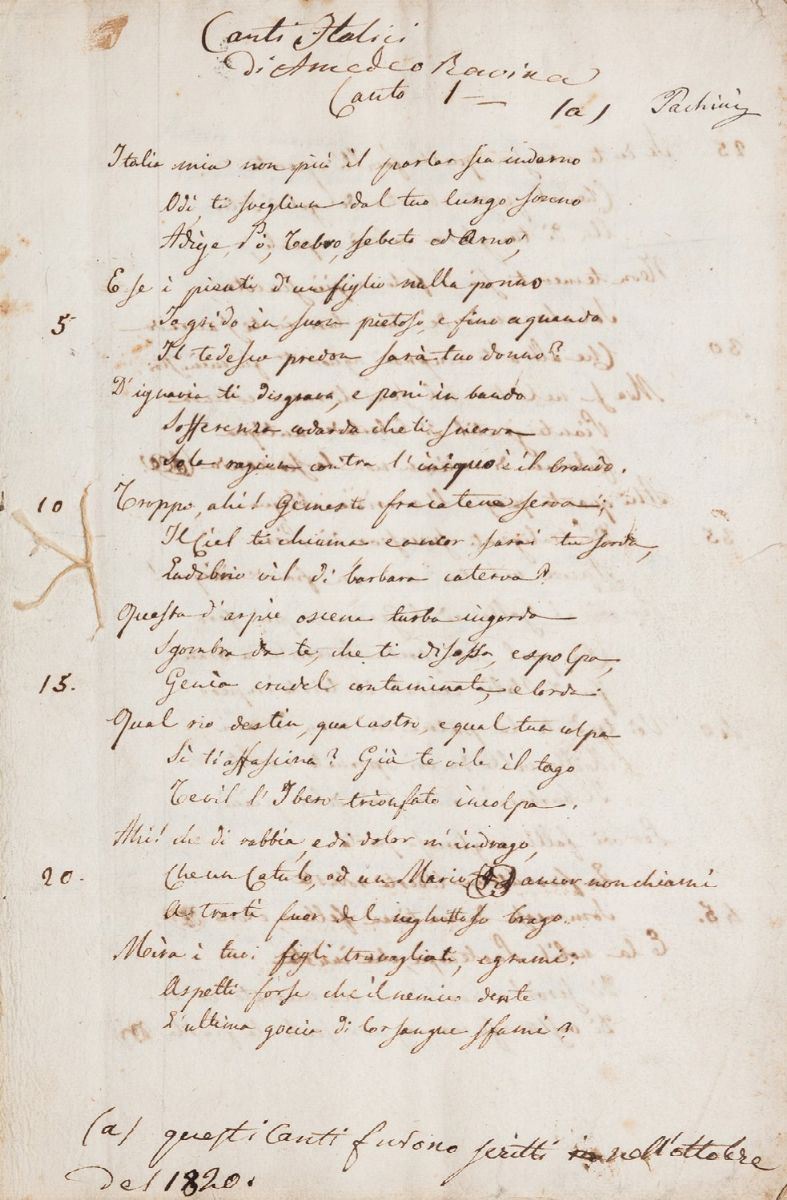 Canti Italici
di Amedeo Ravina
Canto 1 — (a)
Italia mia non più il parlar sia indarno
Odi, ti sveglian dal tuo lungo sonno
Adige, Pò, Tebro, sebeto ed Arno,
E se i pianti d'un figlio nulla ponno
5 Io grido in suon pietoso e fino a quando
Il tedesco predon sarà tuo donno?
D'ignavia ti disgrava, e poni in bando
Sofferenza codarda che ti snerva
Sola ragion contra l'iniquo è il brando.
10 Troppo, ahi! Gemesti fra catene serva;
Il Ciel ti chiama e ancor sarai tu sorda,
Ludibrio vil di barbara caterva?
Questa d'arpie oscena turba ingorda
Sgombra da te, che ti disossa, e spolpa,
15. Genìa crudel contaminata, e lorda.
Qual rio destin, qual astro, e qual tua colpa
Sì ti affascina? Già te vile il tago
Te vil l'Ibero trionfato incolpa.
Ahi! che di rabbia, e di dolor m'indrago,
20. Che un Catulo, od un Mario ancor non chiami
A trarti fuor del neghittoso brago.
Mira i tuoi figli travagliati, e grami:
Aspetti forse che il nemico dente
L'ultima goccia di lor sangue sfami?
(a) questi Canti furono scritti nell'ottobre
del 1820.